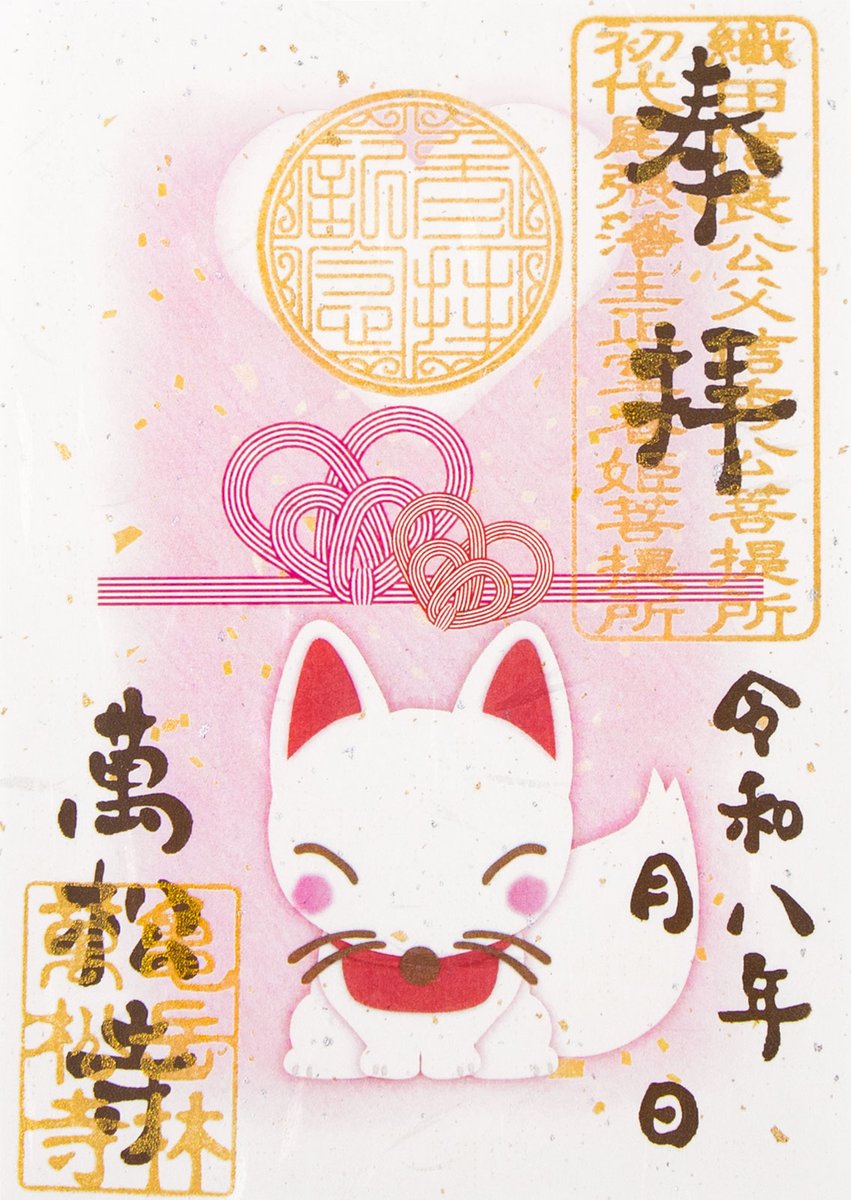 奉拝
織田信長公父信秀公菩提所
初代尾張藩主正室春姫菩提所
令和八年
月 日
萬松寺
亀岳林
萬松寺